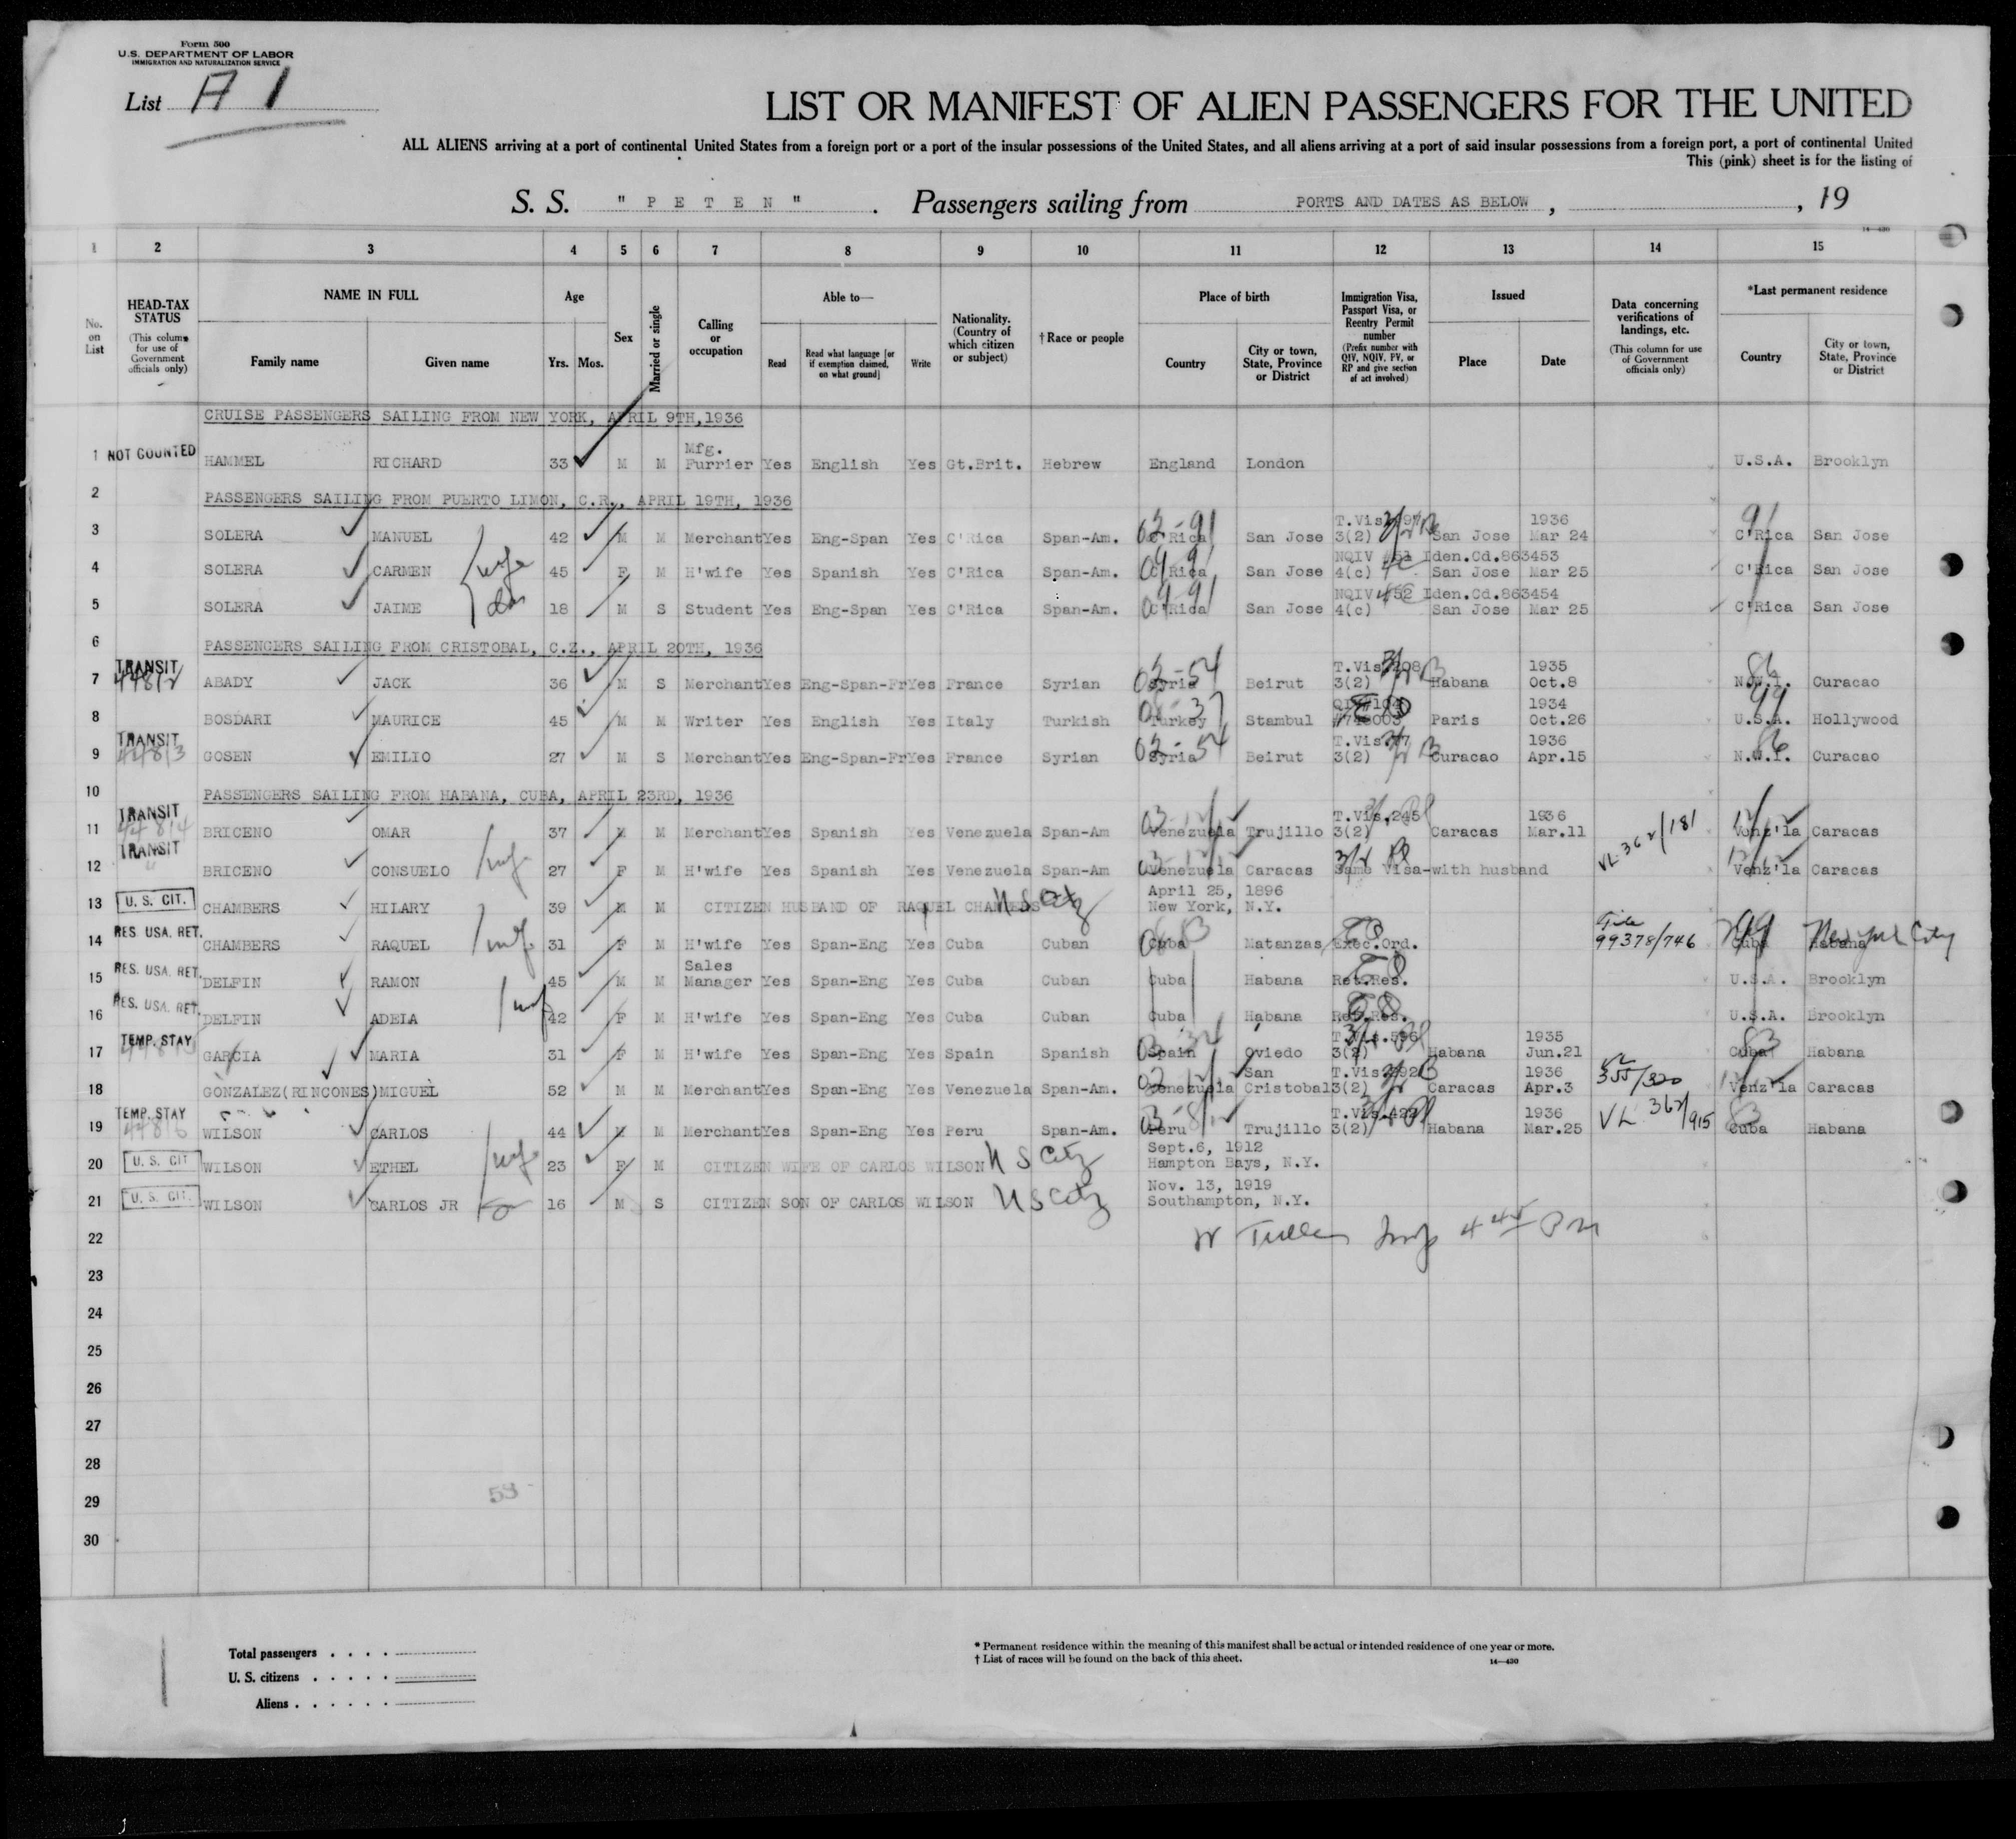 Form 500
U.S. DEPARTMENT OF LABOR
IMMIGRATION AND NATURALIZATION SERVICE
List A 1
LIST OR MANIFEST OF ALIEN PASSENGERS FOR THE UNITED
ALL ALIENS arriving at a port of continental United States from a foreign port or a port of the insular possessions of the United States, and all aliens arriving at a port of said insular possessions from a foreign port, a port of continental United
This (pink) sheet is for the listing of
S. S. " P E T E N " . Passengers sailing from PORTS AND DATES AS BELOW , , 19
14—430
1 2 3 4 5 6 7 8 9 10 11 12 13 14 15
No. on List
HEAD-TAX STATUS (This column for use of Government officials only)
NAME IN FULL Family name Given name
Age Yrs. Mos.
Sex
Married or single
Calling or occupation
Able to— Read Read what language [or if exemption claimed, on what ground] Write
Nationality. (Country of which citizen or subject)
† Race or people
Place of birth Country City or town, State, Province or District
Immigration Visa, Passport Visa, or Reentry Permit number (Prefix number with QIV, NQIV, PV, or RP and give section of act involved)
Issued Place Date
Data concerning verifications of landings, etc. (This column for use of Government officials only)
*Last permanent residence Country City or town, State, Province or District
CRUISE PASSENGERS SAILING FROM NEW YORK, APRIL 9TH,1936
1 NOT COUNTED HAMMEL RICHARD 33 M M Mfg. Furrier Yes English Yes Gt.Brit. Hebrew England London U.S.A. Brooklyn
2 PASSENGERS SAILING FROM PUERTO LIMON, C.R., APRIL 19TH, 1936
3 SOLERA MANUEL 42 M M Merchant Yes Eng-Span Yes C'Rica Span-Am. 02-91 C'Rica San Jose T.Vis 3(2) San Jose 1936 Mar 24 91 C'Rica San Jose
4 SOLERA CARMEN wife 45 F M H'wife Yes Spanish Yes C'Rica Span-Am. C'Rica San Jose NQIV #51 Iden.Cd.863453 4(c) San Jose Mar 25 C'Rica San Jose
5 SOLERA JAIME 18 M S Student Yes Eng-Span Yes C'Rica Span-Am. C'Rica San Jose NQIV #52 Iden.Cd.863454 4(c) San Jose Mar 25 C'Rica San Jose
6 PASSENGERS SAILING FROM CRISTOBAL, C.Z., APRIL 20TH, 1936
7 TRANSIT 44812 ABADY JACK 36 M S Merchant Yes Eng-Span-Fr Yes France Syrian 02-54 Syria Beirut T.Vis 3(2) Habana 1935 Oct.8 86 N.W.I. Curacao
8 BOSDARI MAURICE 45 M M Writer Yes English Yes Italy Turkish Turkey Stambul Paris 1934 Oct.26 99 U.S.A. Hollywood
9 TRANSIT 44813 GOSEN EMILIO 27 M S Merchant Yes Eng-Span-Fr Yes France Syrian 02-54 Syria Beirut T.Vis 3(2) Curacao 1936 Apr.15 86 N.W.I. Curacao
10 PASSENGERS SAILING FROM HABANA, CUBA, APRIL 23RD, 1936
11 TRANSIT 44814 BRICENO OMAR 37 M M Merchant Yes Spanish Yes Venezuela Span-Am Venezuela Trujillo T.Vis.245 3(2) Caracas 1936 Mar.11 VL 362/181 Venz'la Caracas
12 TRANSIT " BRICENO CONSUELO wife 27 F M H'wife Yes Spanish Yes Venezuela Span-Am Venezuela Caracas Same Visa-with husband Venz'la Caracas
13 U. S. CIT. CHAMBERS HILARY 39 M M CITIZEN HUSBAND OF RAQUEL CHAMBERS U S City April 25, 1896 New York, N.Y.
14 RES. USA. RET. CHAMBERS RAQUEL wife 31 F M H'wife Yes Span-Eng Yes Cuba Cuban Cuba Matanzas Exec.Ord. File 99378/746 99 Cuba Habana New York City
15 RES. USA. RET. DELFIN RAMON 45 M M Sales Manager Yes Span-Eng Yes Cuba Cuban Cuba Habana Ret.Res. U.S.A. Brooklyn
16 RES. USA. RET. DELFIN ADELA wife 42 F M H'wife Yes Span-Eng Yes Cuba Cuban Cuba Habana Ret.Res. U.S.A. Brooklyn
17 TEMP. STAY GARCIA MARIA 31 F M H'wife Yes Span-Eng Yes Spain Spanish Spain Oviedo T.Vis.596 3(2) Habana 1935 Jun.21 83 Cuba Habana
18 GONZALEZ(RINCONES)MIGUEL 52 M M Merchant Yes Span-Eng Yes Venezuela Span-Am. Venezuela San Cristobal T.Vis 3(2) Caracas 1936 Apr.3 VL 355/320 Venz'la Caracas
19 TEMP. STAY 44816 WILSON CARLOS 44 M M Merchant Yes Span-Eng Yes Peru Span-Am. Peru Trujillo T.Vis.422 3(2) Habana 1936 Mar.25 VL 362/915 83 Cuba Habana
20 U. S. CIT WILSON ETHEL wife 23 F M CITIZEN WIFE OF CARLOS WILSON U S City Sept.6, 1912 Hampton Bays, N.Y.
21 U. S. CIT. WILSON CARLOS JR 16 M S CITIZEN SON OF CARLOS WILSON U S City Nov. 13, 1919 Southampton, N.Y.
22 4 45 PM
23
24
25
26
27
28
29 53
30
Total passengers . . . .
U. S. citizens . . . . .
Aliens . . . . . .
* Permanent residence within the meaning of this manifest shall be actual or intended residence of one year or more.
† List of races will be found on the back of this sheet.
14—430